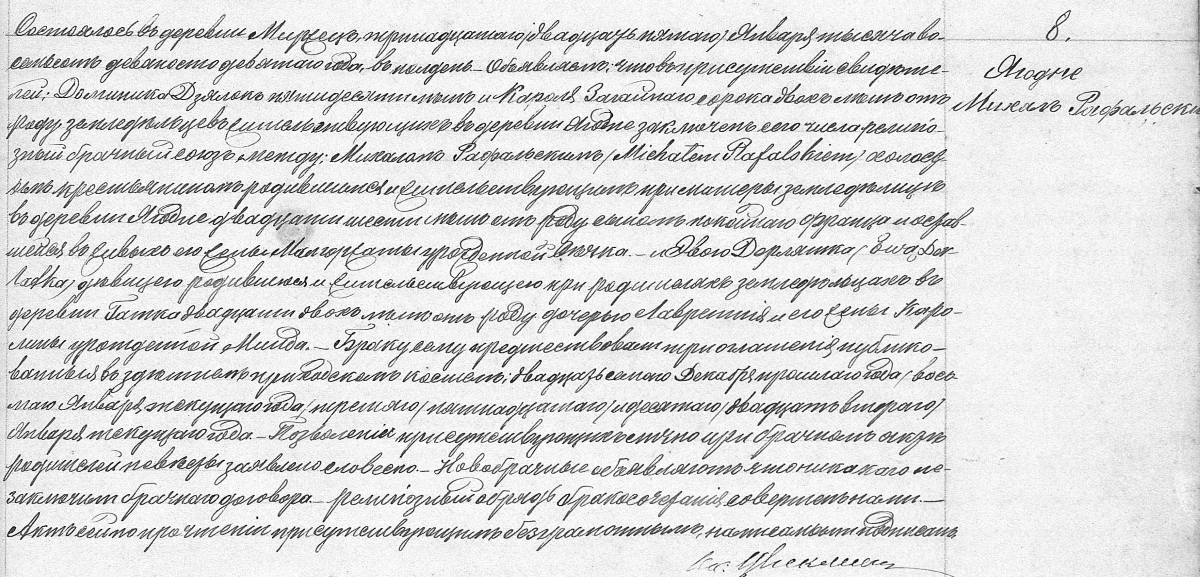 Состоялось въ деревни Миржецъ, тринадцатаго /двадцать пятаго/ Января тысяча во-
семьсотъ девяносто девятаго года, въ полдень – Объявляемъ, что въ присутствіи свидѣте-
лей: Доминика Дзялокъ пятидесяти лѣтъ и Кароля Загайнаго сорока двохъ лѣтъ отъ
роду земледѣльцевъ жительствующихъ въ деревни Ягодне заключенъ сего числа религіо-
зный брачный союзъ между: Михаломъ Рафальскимъ /Michałem Rafalskiem/ холосты
крестьяниномъ родившимся и жительствующимъ при матери земледѣлицѣ
въ деревни Ягодне двадцати шести лѣтъ отъ роду сыномъ покойнаго Франца и остав-
шейся въ живыхъ его жены Малгоржаты урожденной – и Эвою Дерлятка /Ewa Der-
latka/ дѣвицею родившеюся и жительствующею при родителяхъ земледѣльцахъ въ
деревни Гатка двадцати двохъ лѣтъ отъ роду дочерью Лаврентія и его жены Каро-
лины урожденной Милда. – Браку сему предшествовали три оглашенія публико-
ванныя въ здѣшнемъ приходскомъ костелѣ: двадцать седьмаго Декабря прошлаго года /вось-
маго Января текущаго года/ третьяго /пятнадцатаго/ и десятаго /двадцать втораго/
Января текущаго года – Позволеніе присутствующихъ лично при брачномъ актѣ
родителей невѣсты заявлено словесно. – Новобрачные объявляютъ что никакого не
заключили брачнаго договора – религіозный обрядъ бракосочетанія совершенъ нами –
Актъ сей по прочтеніи присутствующимъ безграмотнымъ, нами самыми подписанъ
Кс.
8.
Ягодне
Михалъ Рафальски